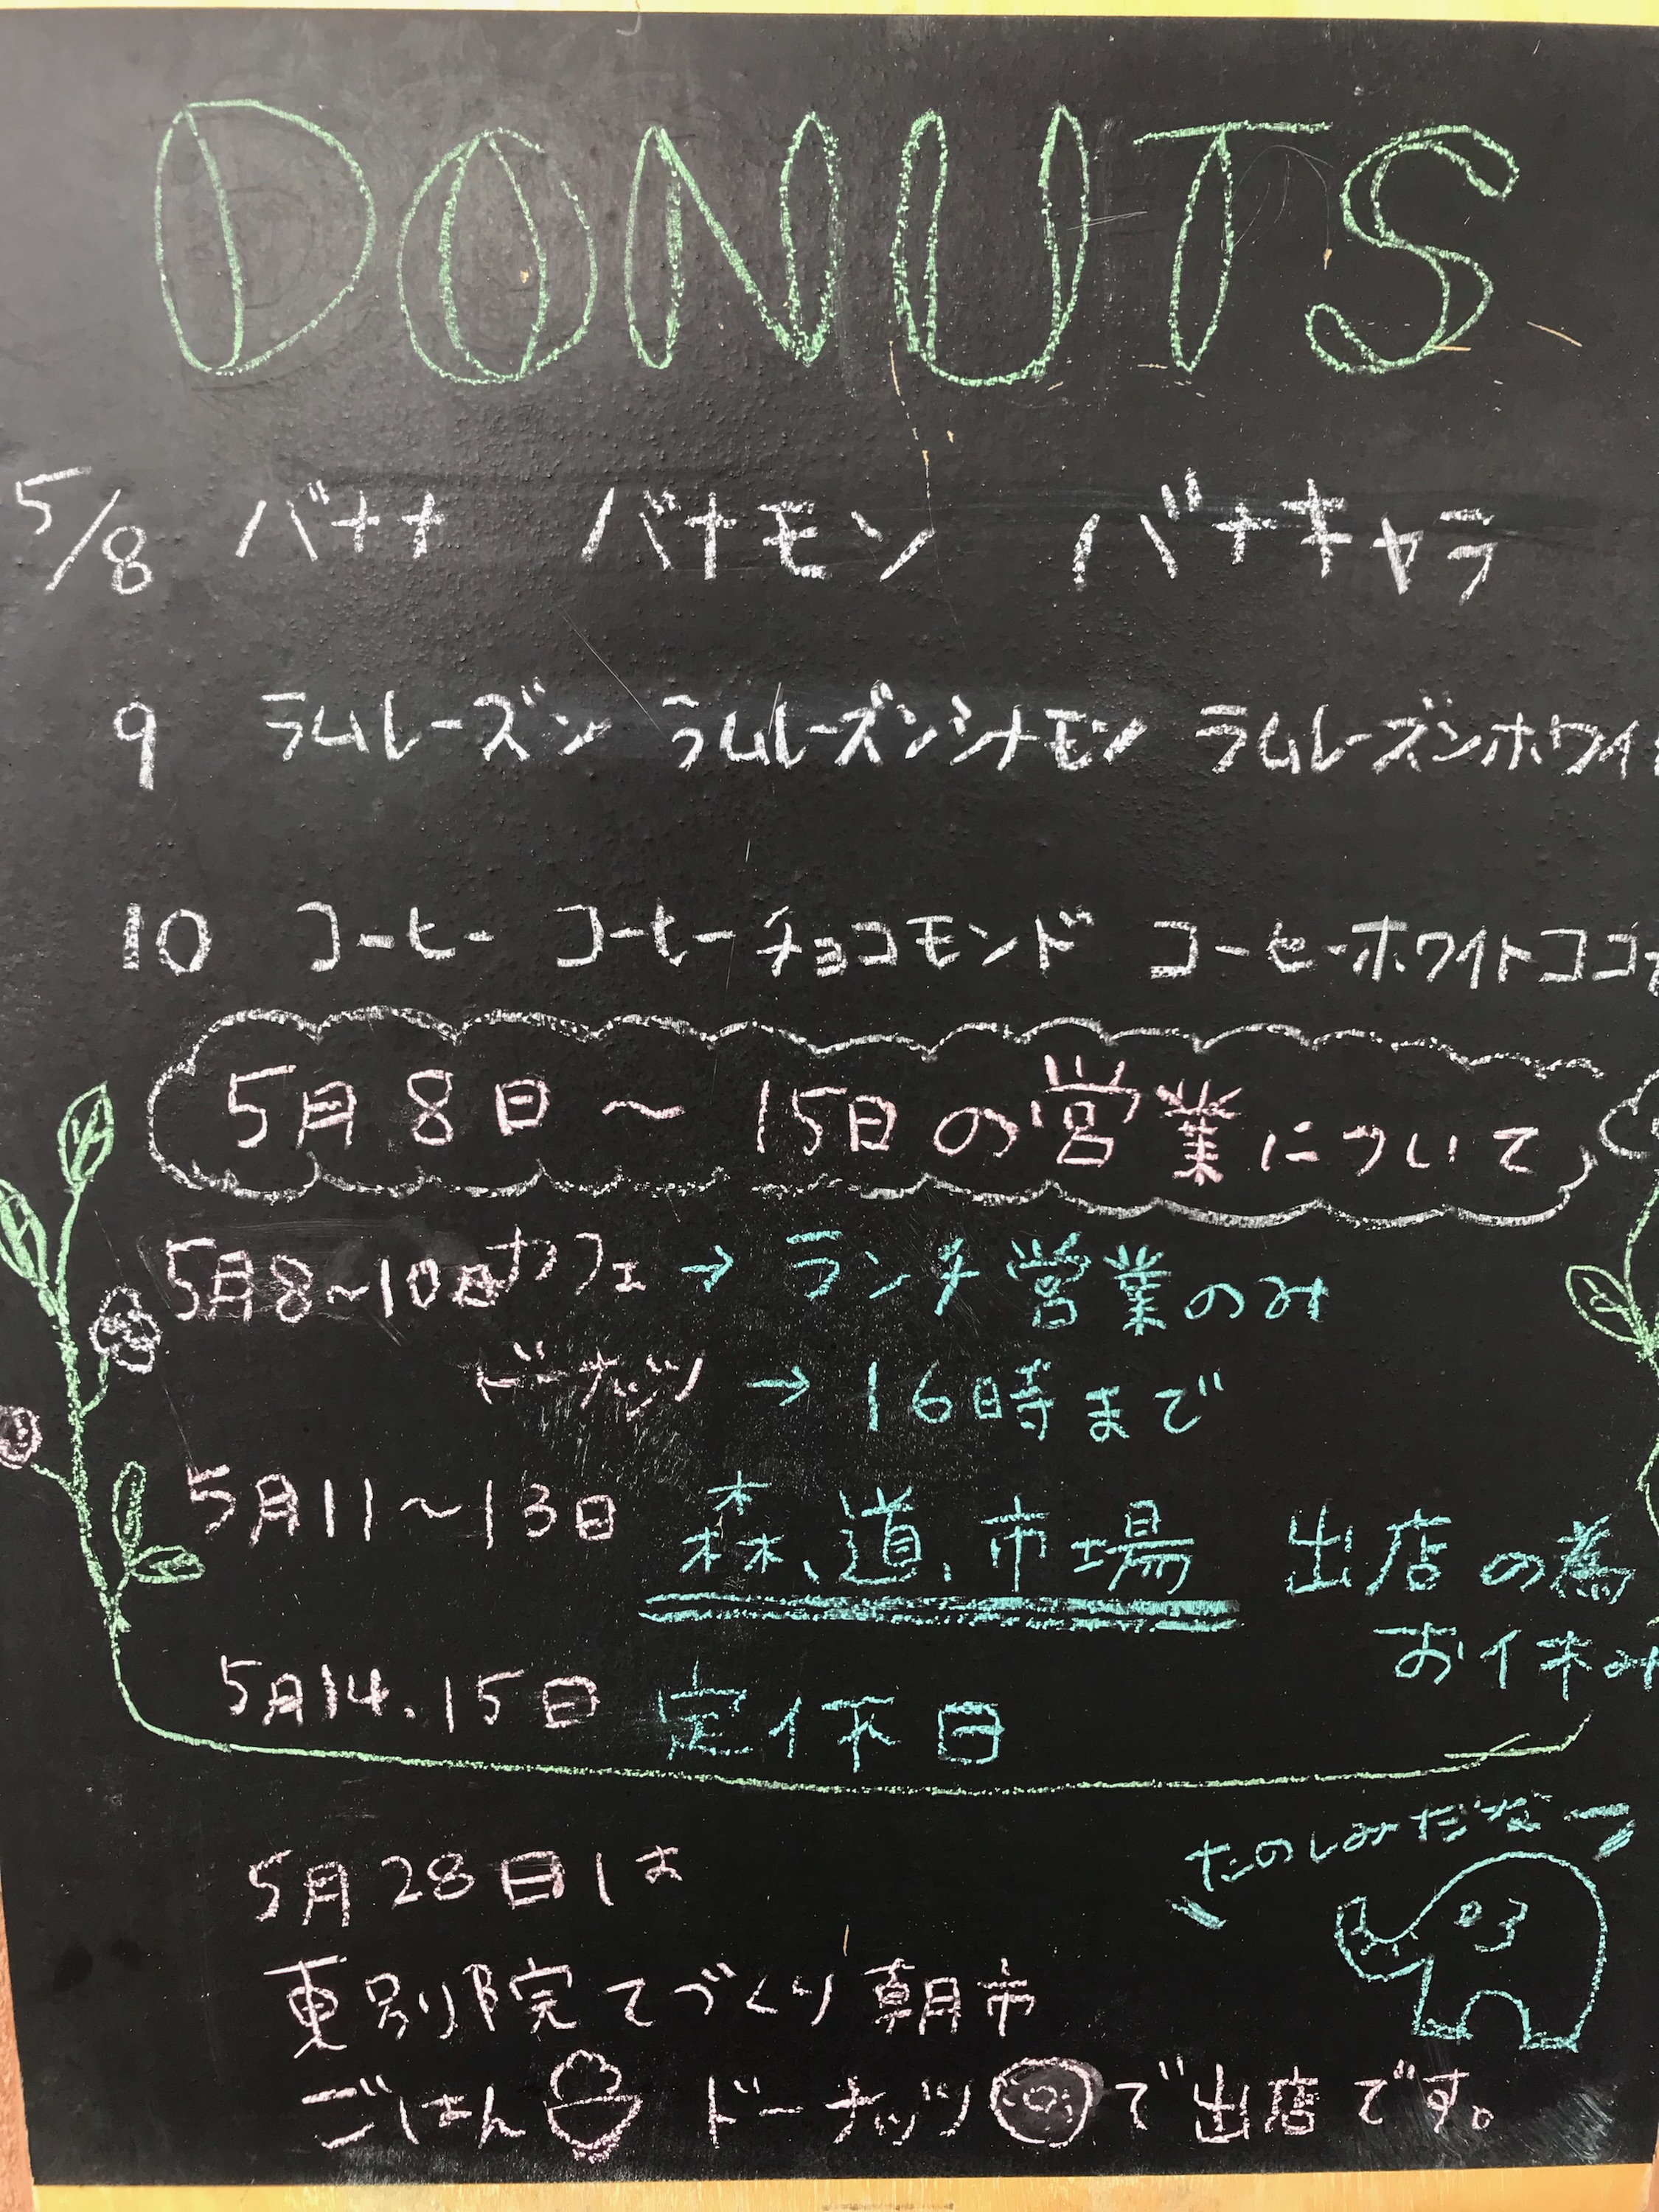 DONUTS
5/8 バナナ バナモン バナキャラ
9 ラムレーズン ラムレーズンシナモン ラムレーズンホワイ
10 コーヒー コーヒーチョコモンド コーヒーホワイトココ
5月8日〜15日の営業について
5月8〜10日カフェ→ランチ営業のみ
ドーナッツ→16時まで
5月11〜13日 森、道、市場 出店の為
お休み
5月14、15日 定休日
たのしみだなー
5月28日は
東別院てづくり朝市
ごはん ドーナッツ で出店です。